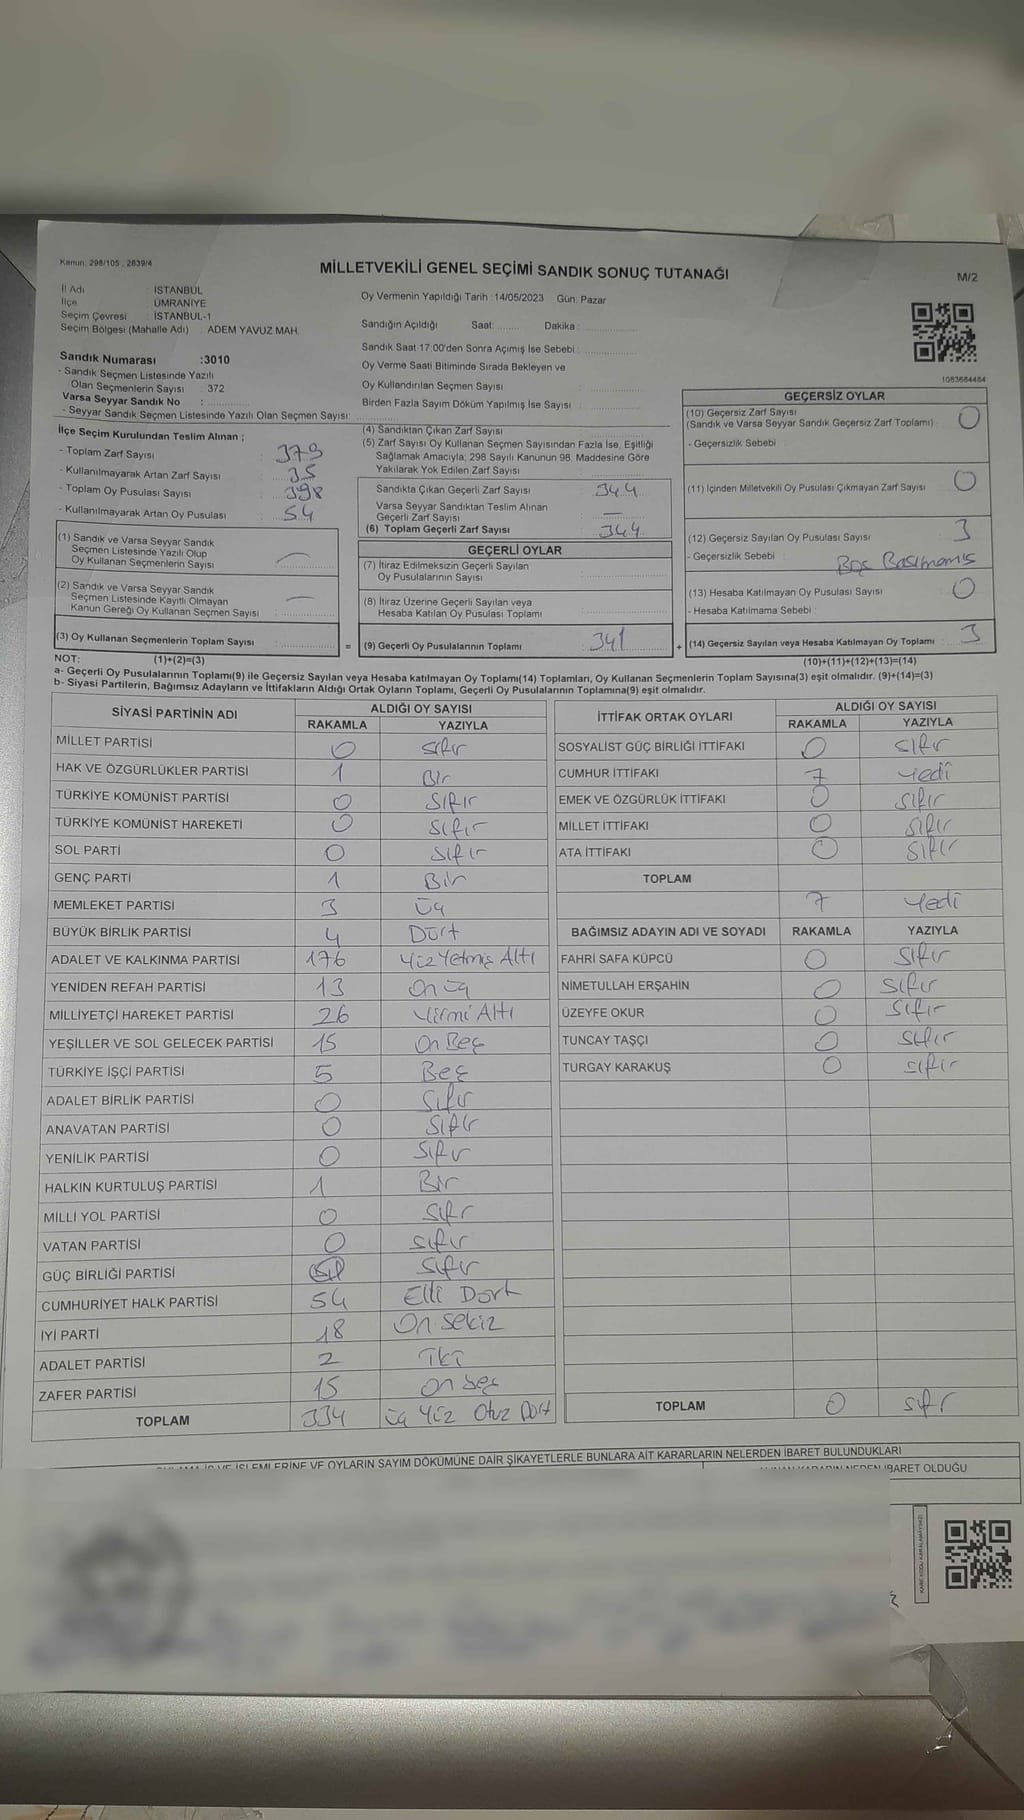 Kanun: 298/105 , 2839/4
MİLLETVEKİLİ GENEL SEÇİMİ SANDIK SONUÇ TUTANAĞI
M/2
İl Adı : İSTANBUL
İlçe : ÜMRANİYE
Seçim Çevresi : İSTANBUL-1
Seçim Bölgesi (Mahalle Adı) : ADEM YAVUZ MAH.
Sandık Numarası :3010
- Sandık Seçmen Listesinde Yazılı
Olan Seçmenlerin Sayısı : 372
Varsa Seyyar Sandık No :
- Seyyar Sandık Seçmen Listesinde Yazılı Olan Seçmen Sayısı:
Oy Vermenin Yapıldığı Tarih :14/05/2023 Gün: Pazar
Sandığın Açıldığı Saat: Dakika :
Sandık Saat 17:00'den Sonra Açımış İse Sebebi :
Oy Verme Saati Bitiminde Sırada Bekleyen ve
Oy Kullandırılan Seçmen Sayısı :
Birden Fazla Sayım Döküm Yapılmış İse Sayısı :
1083684484
İlçe Seçim Kurulundan Teslim Alınan ;
- Toplam Zarf Sayısı : 379
- Kullanılmayarak Artan Zarf Sayısı : 35
- Toplam Oy Pusulası Sayısı : 398
- Kullanılmayarak Artan Oy Pusulası : 54
(1) Sandık ve Varsa Seyyar Sandık
Seçmen Listesinde Yazılı Olup
Oy Kullanan Seçmenlerin Sayısı : —
(2) Sandık ve Varsa Seyyar Sandık
Seçmen Listesinde Kayıtlı Olmayan
Kanun Gereği Oy Kullanan Seçmen Sayısı : —
(3) Oy Kullanan Seçmenlerin Toplam Sayısı =
(4) Sandıktan Çıkan Zarf Sayısı :
(5) Zarf Sayısı Oy Kullanan Seçmen Sayısından Fazla İse, Eşitliği
Sağlamak Amacıyla, 298 Sayılı Kanunun 98. Maddesine Göre
Yakılarak Yok Edilen Zarf Sayısı :
Sandıkta Çıkan Geçerli Zarf Sayısı : 344
Varsa Seyyar Sandıktan Teslim Alınan
Geçerli Zarf Sayısı : —
(6) Toplam Geçerli Zarf Sayısı : 344
GEÇERLİ OYLAR
(7) İtiraz Edilmeksizin Geçerli Sayılan
Oy Pusulalarının Sayısı :
(8) İtiraz Üzerine Geçerli Sayılan veya
Hesaba Katılan Oy Pusulası Toplamı :
(9) Geçerli Oy Pusulalarının Toplamı : 341 +
GEÇERSİZ OYLAR
(10) Geçersiz Zarf Sayısı : 0
(Sandık ve Varsa Seyyar Sandık Geçersiz Zarf Toplamı)
- Geçersizlik Sebebi :
(11) İçinden Milletvekili Oy Pusulası Çıkmayan Zarf Sayısı : 0
(12) Geçersiz Sayılan Oy Pusulası Sayısı : 3
- Geçersizlik Sebebi : Boş Basılmamış
(13) Hesaba Katılmayan Oy Pusulası Sayısı : 0
- Hesaba Katılmama Sebebi :
(14) Geçersiz Sayılan veya Hesaba Katılmayan Oy Toplamı : 3
NOT: (1)+(2)=(3)
(10)+(11)+(12)+(13)=(14)
a- Geçerli Oy Pusulalarının Toplamı(9) ile Geçersiz Sayılan veya Hesaba katılmayan Oy Toplamı(14) Toplamları, Oy Kullanan Seçmenlerin Toplam Sayısına(3) eşit olmalıdır. (9)+(14)=(3)
b- Siyasi Partilerin, Bağımsız Adayların ve İttifakların Aldığı Ortak Oyların Toplamı, Geçerli Oy Pusulalarının Toplamına(9) eşit olmalıdır.
SİYASİ PARTİNİN ADI ALDIĞI OY SAYISI
RAKAMLA YAZIYLA
MİLLET PARTİSİ 0 Sıfır
HAK VE ÖZGÜRLÜKLER PARTİSİ 1 Bir
TÜRKİYE KOMÜNİST PARTİSİ 0 Sıfır
TÜRKİYE KOMÜNİST HAREKETİ 0 Sıfır
SOL PARTİ 0 Sıfır
GENÇ PARTİ 1 Bir
MEMLEKET PARTİSİ 3 Üç
BÜYÜK BİRLİK PARTİSİ 4 Dört
ADALET VE KALKINMA PARTİSİ 176 Yüz Yetmiş Altı
YENİDEN REFAH PARTİSİ 13 On üç
MİLLİYETÇİ HAREKET PARTİSİ 26 Yirmi Altı
YEŞİLLER VE SOL GELECEK PARTİSİ 15 On Beş
TÜRKİYE İŞÇİ PARTİSİ 5 Beş
ADALET BİRLİK PARTİSİ 0 Sıfır
ANAVATAN PARTİSİ 0 Sıfır
YENİLİK PARTİSİ 0 Sıfır
HALKIN KURTULUŞ PARTİSİ 1 Bir
MİLLİ YOL PARTİSİ 0 Sıfır
VATAN PARTİSİ 0 Sıfır
GÜÇ BİRLİĞİ PARTİSİ Sıfır
CUMHURİYET HALK PARTİSİ 54 Elli Dört
İYİ PARTİ 18 On Sekiz
ADALET PARTİSİ 2 İki
ZAFER PARTİSİ 15 On beş
TOPLAM 334 Üç Yüz Otuz Dört
İTTİFAK ORTAK OYLARI ALDIĞI OY SAYISI
RAKAMLA YAZIYLA
SOSYALİST GÜÇ BİRLİĞİ İTTİFAKI 0 Sıfır
CUMHUR İTTİFAKI 7 Yedi
EMEK VE ÖZGÜRLÜK İTTİFAKI 0 Sıfır
MİLLET İTTİFAKI 0 Sıfır
ATA İTTİFAKI 0 Sıfır
TOPLAM
7 Yedi
BAĞIMSIZ ADAYIN ADI VE SOYADI RAKAMLA YAZIYLA
FAHRİ SAFA KÜPCÜ 0 Sıfır
NİMETULLAH ERŞAHİN 0 Sıfır
ÜZEYFE OKUR 0 Sıfır
TUNCAY TAŞÇI 0 Sıfır
TURGAY KARAKUŞ 0 Sıfır
TOPLAM 0 Sıfır
İŞLEMLERİNE VE OYLARIN SAYIM DÖKÜMÜNE DAİR ŞİKAYETLERLE BUNLARA AİT KARARLARIN NELERDEN İBARET BULUNDUKLARI
KARARIN NEDEN İBARET OLDUĞU